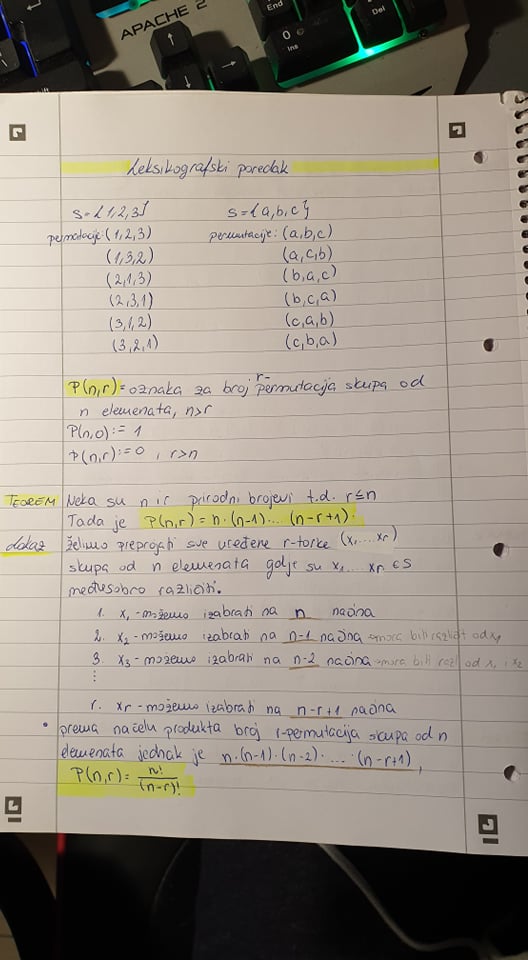 APACHE 2
End
Del
0
Ins
Leksikografski poredak
S={1,2,3} S={a,b,c}
permutacije:(1,2,3) permutacije:(a,b,c)
(1,3,2) (a,c,b)
(2,1,3) (b,a,c)
(2,3,1) (b,c,a)
(3,1,2) (c,a,b)
(3,2,1) (c,b,a)
P(n,r)=oznaka za broj r-permutacija skupa od
n elemenata, n>r
P(n,0):=1
P(n,r):=0, r>n
TEOREM Neka su n i r prirodni brojevi t.d. r≤n
Tada je P(n,r)=n·(n-1)·...·(n-r+1).
dokaz želimo prebrojati sve uređene r-torke (x₁,...,xᵣ)
skupa od n elemenata gdje su x₁,...,xᵣ ∈S
međusobno različiti.
1. x₁-možemo izabrati na n načina
2. x₂-možemo izabrati na n-1 načina →mora biti različit od x₁
3. x₃-možemo izabrati na n-2 načina →mora biti razl od x₁ i x₂
⋮
r. xᵣ-možemo izabrati na n-r+1 načina
• prema načelu produkta broj r-permutacija skupa od n
elemenata jednak je n·(n-1)·(n-2)·...·(n-r+1),
P(n,r)=n!/(n-r)!